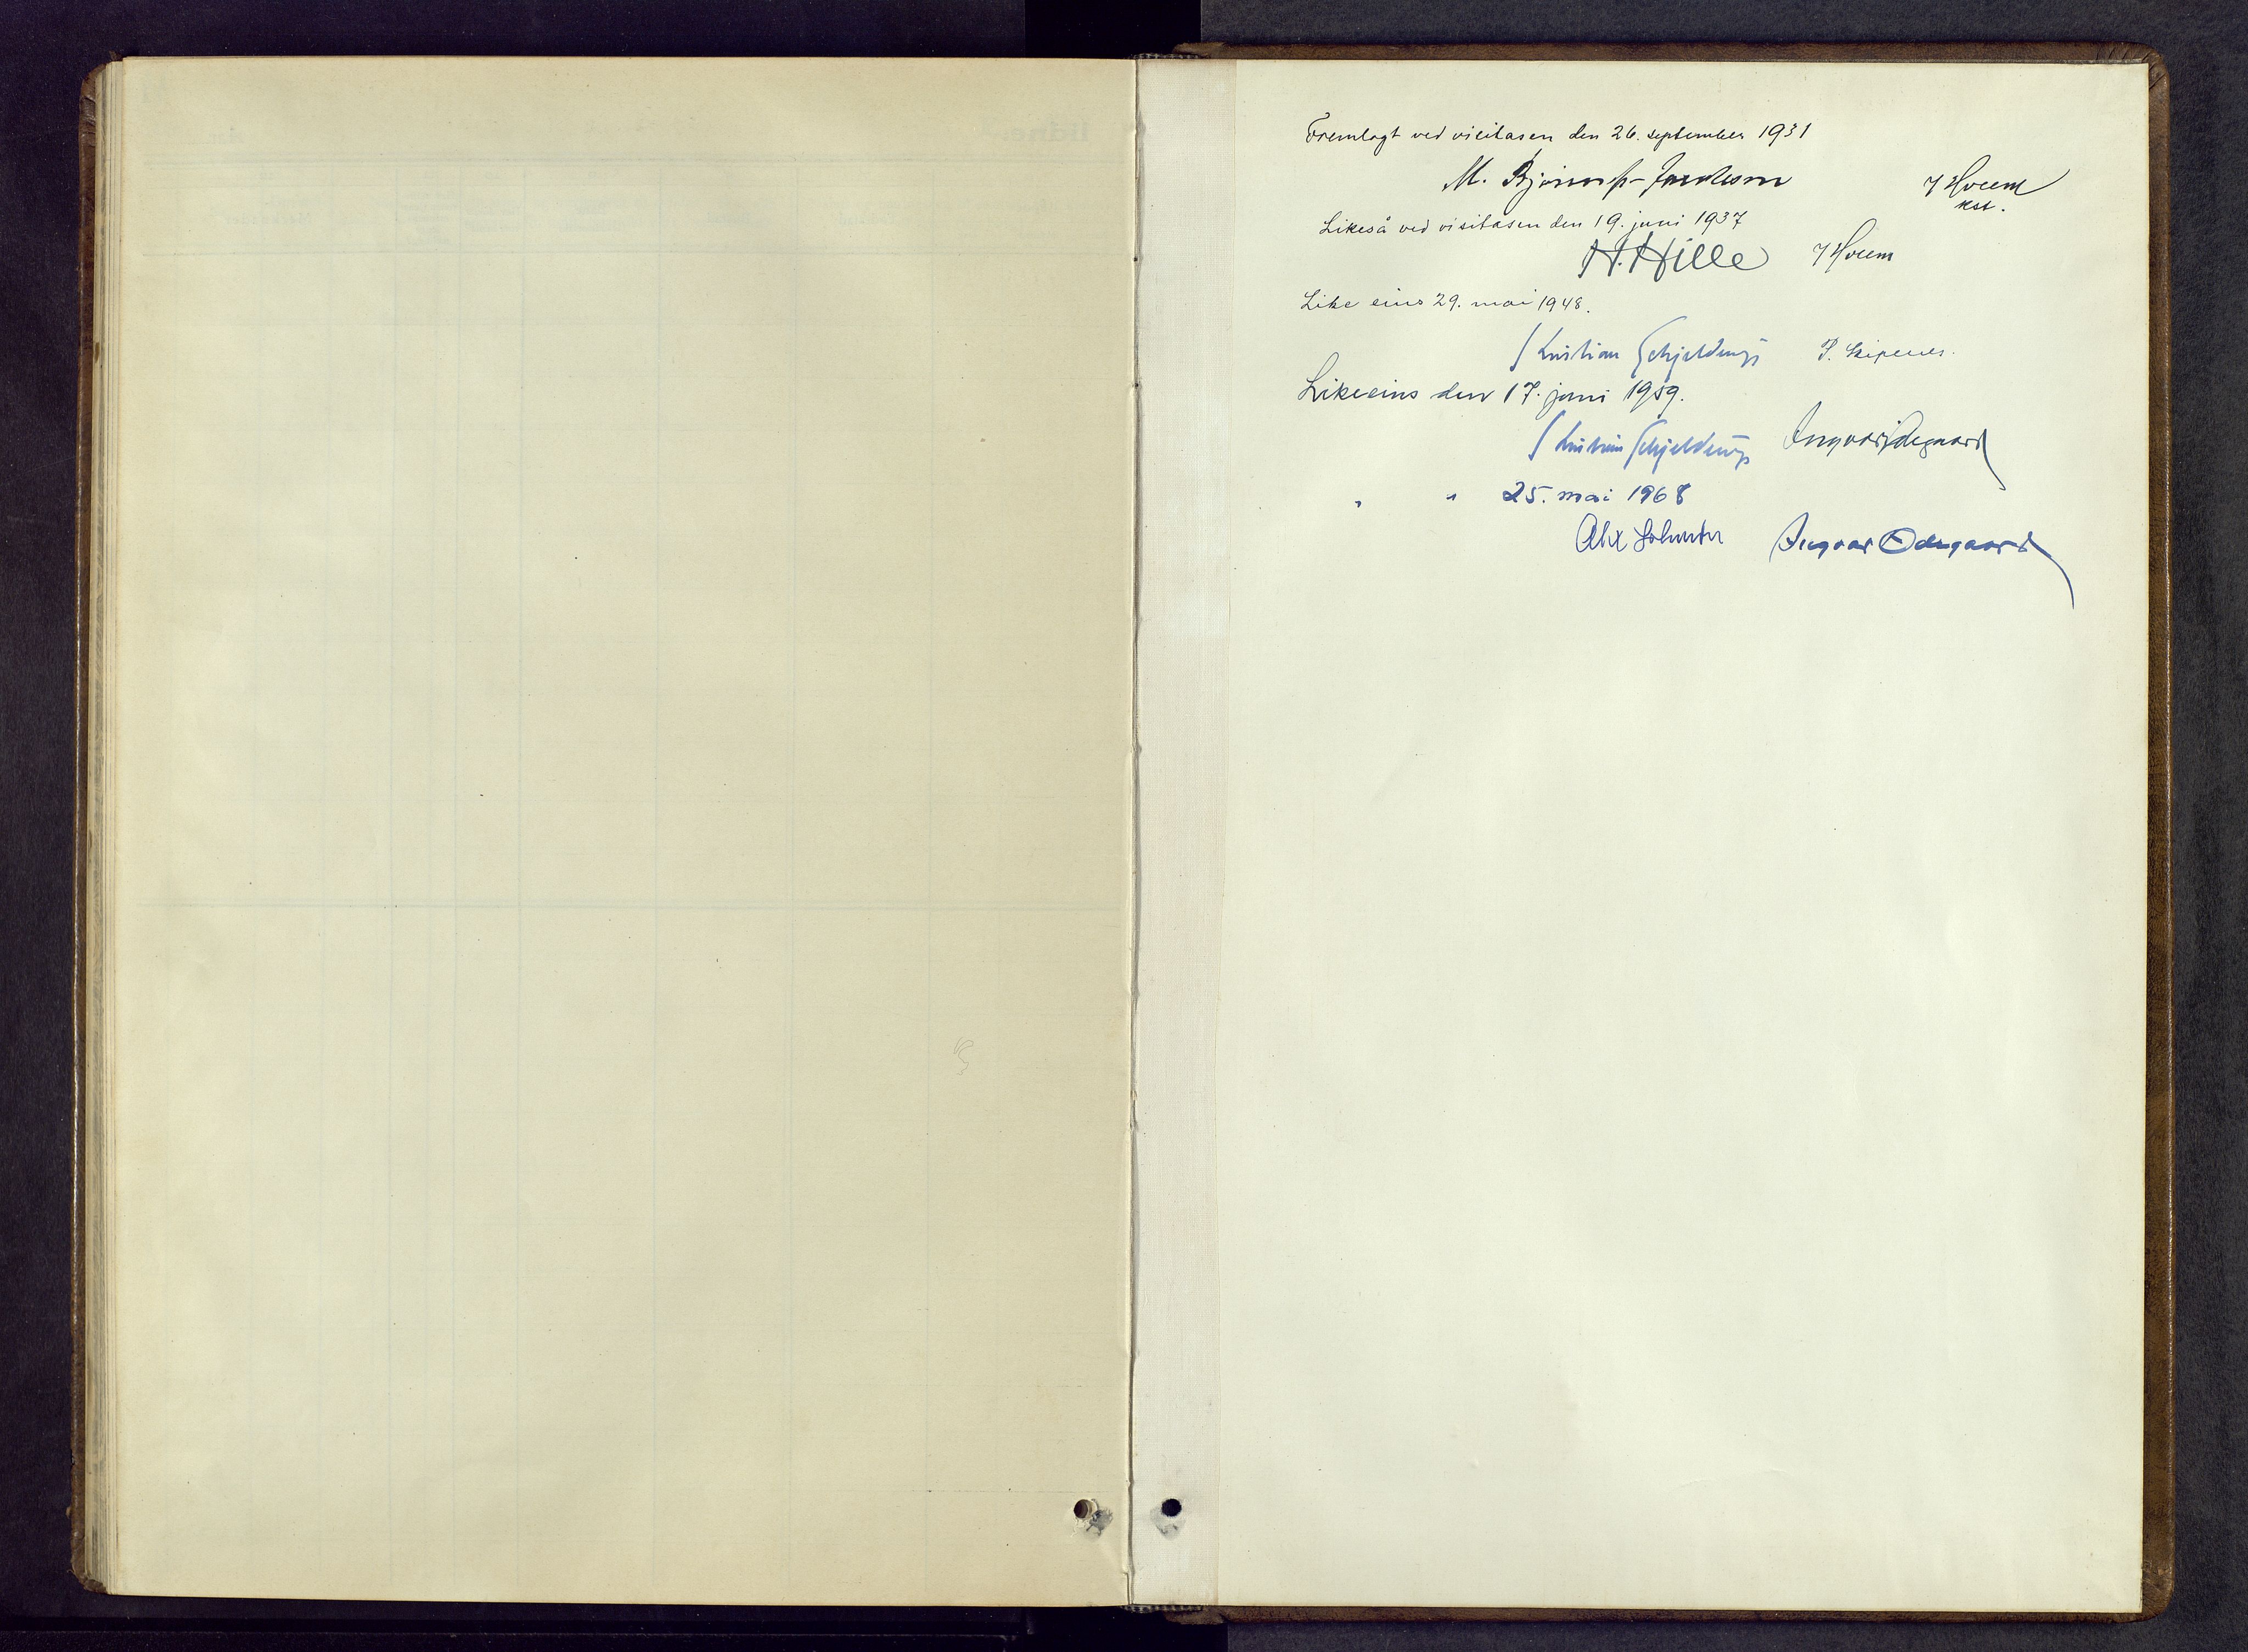 Fremlagt ved visitasen den 26. september 1931
M. Bjønness-Jacobsen
J Hoem
kst.
Likeså ved visitasen den 19. juni 1937
H. Hille J Hoem
Like eins 29. mai 1948.
Kristian Schjelderup
Likeeins den 17. juni 1959.
Kristian Schjelderup Ingvar Ødegaard
" " 25. mai 1968
Alex Johnson Ingvar Ødegaard